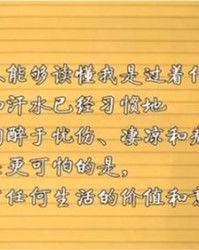 能够读懂我是过着什
汗水已经习惯地
醉于忧伤、凄凉和
更可怕的是，
任何生活的价值和